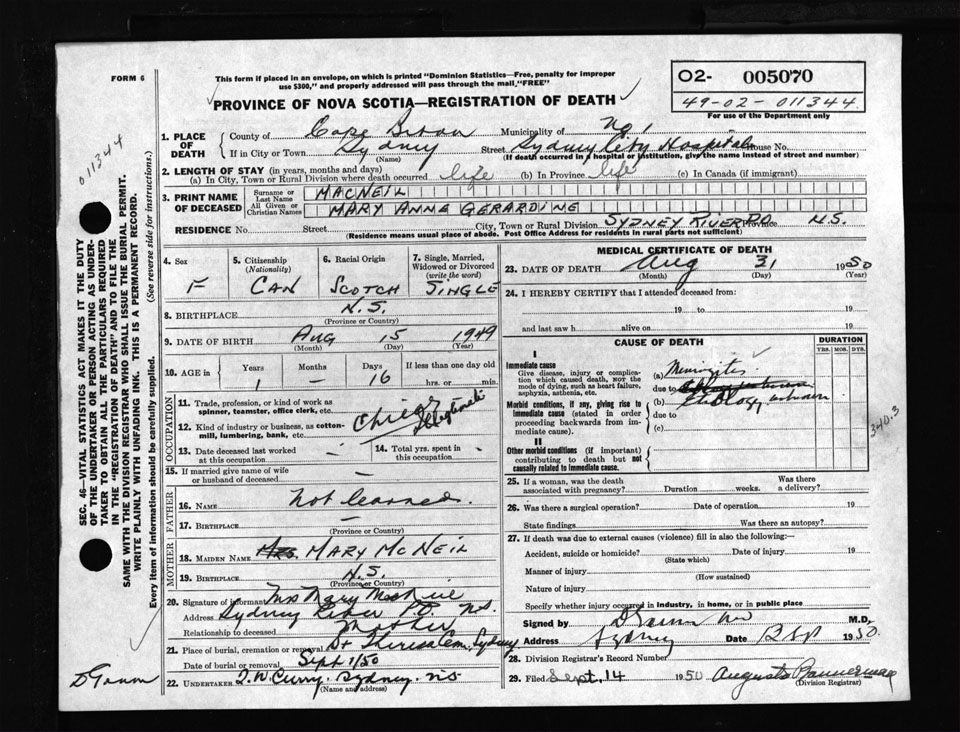 FORM 6
This form if placed in an envelope, on which is printed "Dominion Statistics—Free, penalty for improper
use $300," and properly addressed will pass through the mail, "FREE"
PROVINCE OF NOVA SCOTIA—REGISTRATION OF DEATH
O2- 005070
49-02-011344
For use of the Department only
011344
SEC. 46—VITAL STATISTICS ACT MAKES IT THE DUTY
OF THE UNDERTAKER OR PERSON ACTING AS UNDER-
TAKER TO OBTAIN ALL THE PARTICULARS REQUIRED
IN THE "REGISTRATION OF DEATH" AND TO FILE THE
SAME WITH THE DIVISION REGISTRAR WHO SHALL ISSUE THE BURIAL PERMIT.
WRITE PLAINLY WITH UNFADING INK. THIS IS A PERMANENT RECORD.
Every item of information should be carefully supplied. (See reverse side for instructions.)
1. PLACE OF DEATH County of Cape Breton Municipality of No. 1
If in City or Town Sydney Street Sydney City Hospital House No.
(Name) (If death occurred in a hospital or institution, give the name instead of street and number)
2. LENGTH OF STAY (in years, months and days)
(a) In City, Town or Rural Division where death occurred life (b) In Province life (c) In Canada (if immigrant)
3. PRINT NAME OF DECEASED Surname or Last Name MACNEIL
All Given or Christian Names MARY ANNE GERARDINE
RESIDENCE No. Street City, Town or Rural Division SYDNEY RIVER P.O. Province N.S.
(Residence means usual place of abode. Post Office Address for residents in rural parts not sufficient)
4. Sex F
5. Citizenship (Nationality) CAN
6. Racial Origin SCOTCH
7. Single, Married, Widowed or Divorced (write the word) SINGLE
8. BIRTHPLACE N.S.
(Province or Country)
9. DATE OF BIRTH AUG 15 1949
(Month) (Day) (Year)
10. AGE in Years Months Days If less than one day old
1 — 16 hrs. or min.
OCCUPATION
11. Trade, profession, or kind of work as
spinner, teamster, office clerk, etc.
12. Kind of industry or business, as cotton-
mill, lumbering, bank, etc.
Child
Illegitimate
13. Date deceased last worked
at this occupation —
14. Total yrs. spent in
this occupation —
15. If married give name of wife
or husband of deceased
FATHER
16. Name Not learned.
17. Birthplace —
(Province or Country)
MOTHER
18. Maiden Name Mrs. MARY MCNEIL
19. Birthplace N.S.
(Province or Country)
20. Signature of informant Mrs Mary MacNeil
Address Sydney River P.O. N.S.
Relationship to deceased Mother
21. Place of burial, cremation or removal St Theresa Cem. Sydney
Date of burial or removal Sept 1/50
22. UNDERTAKER T. W. Curry. Sydney. N.S.
(Name and address)
MEDICAL CERTIFICATE OF DEATH
23. DATE OF DEATH Aug 31 1950
(Month) (Day) (Year)
24. I HEREBY CERTIFY that I attended deceased from:
19 to 19
and last saw h alive on 19
CAUSE OF DEATH
DURATION
YRS. MOS. DYS.
I
Immediate cause
Give disease, injury or complica-
tion which caused death, NOT the
mode of dying, such as heart failure,
asphyxia, asthenia, etc.
(a)
due to
Morbid conditions, if any, giving rise to
immediate cause (stated in order
proceeding backwards from im-
mediate cause).
(b) Etiology unknown
due to
(c)
II
Other morbid conditions (if important)
contributing to death but not
causally related to immediate cause.
340.3
25. If a woman, was the death
associated with pregnancy? Duration weeks. Was there
a delivery?
26. Was there a surgical operation? Date of operation 19
State findings Was there an autopsy?
27. If death was due to external causes (violence) fill in also the following:—
Accident, suicide or homicide? Date of injury 19
(State which)
Manner of injury
(How sustained)
Nature of injury
Specify whether injury occurred in industry, in home, or in public place
Signed by M.D.
Address Sydney Date 2 Sep 1950.
28. Division Registrar's Record Number
29. Filed Sept. 14 1950 Bannerman
(Division Registrar)